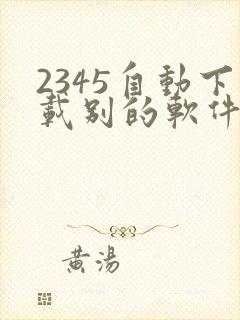 2345自動下
載別的軟件
黃湯